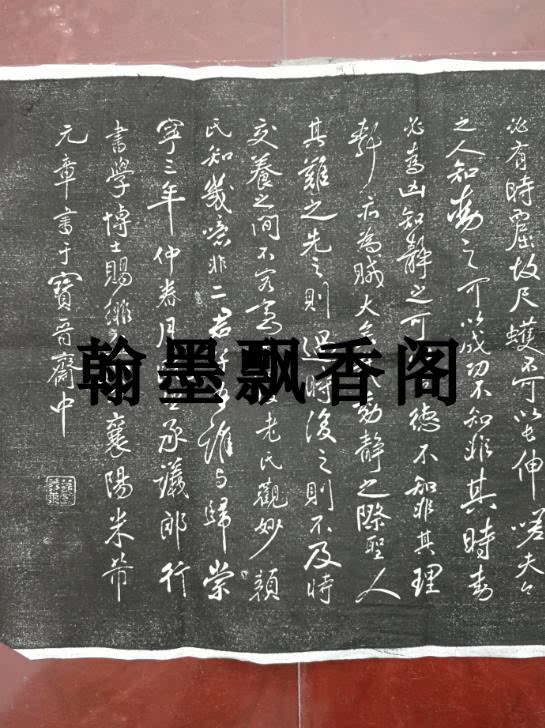 必有時屈故尺蠖不可以長伸嗟夫今
之人知動之可以成功不知非其時動
必為凶知靜之可德不知非其理
靜亦為賊大動靜之際聖人
其難之先之則過時後之則不及時
交養之間不容老氏觀妙顏
氏知幾噫非二君誰与歸崇
寧三年仲春月承議郎行
書學博士賜緋襄陽米芾
元章書于寶晉齋中
翰墨飘香阁